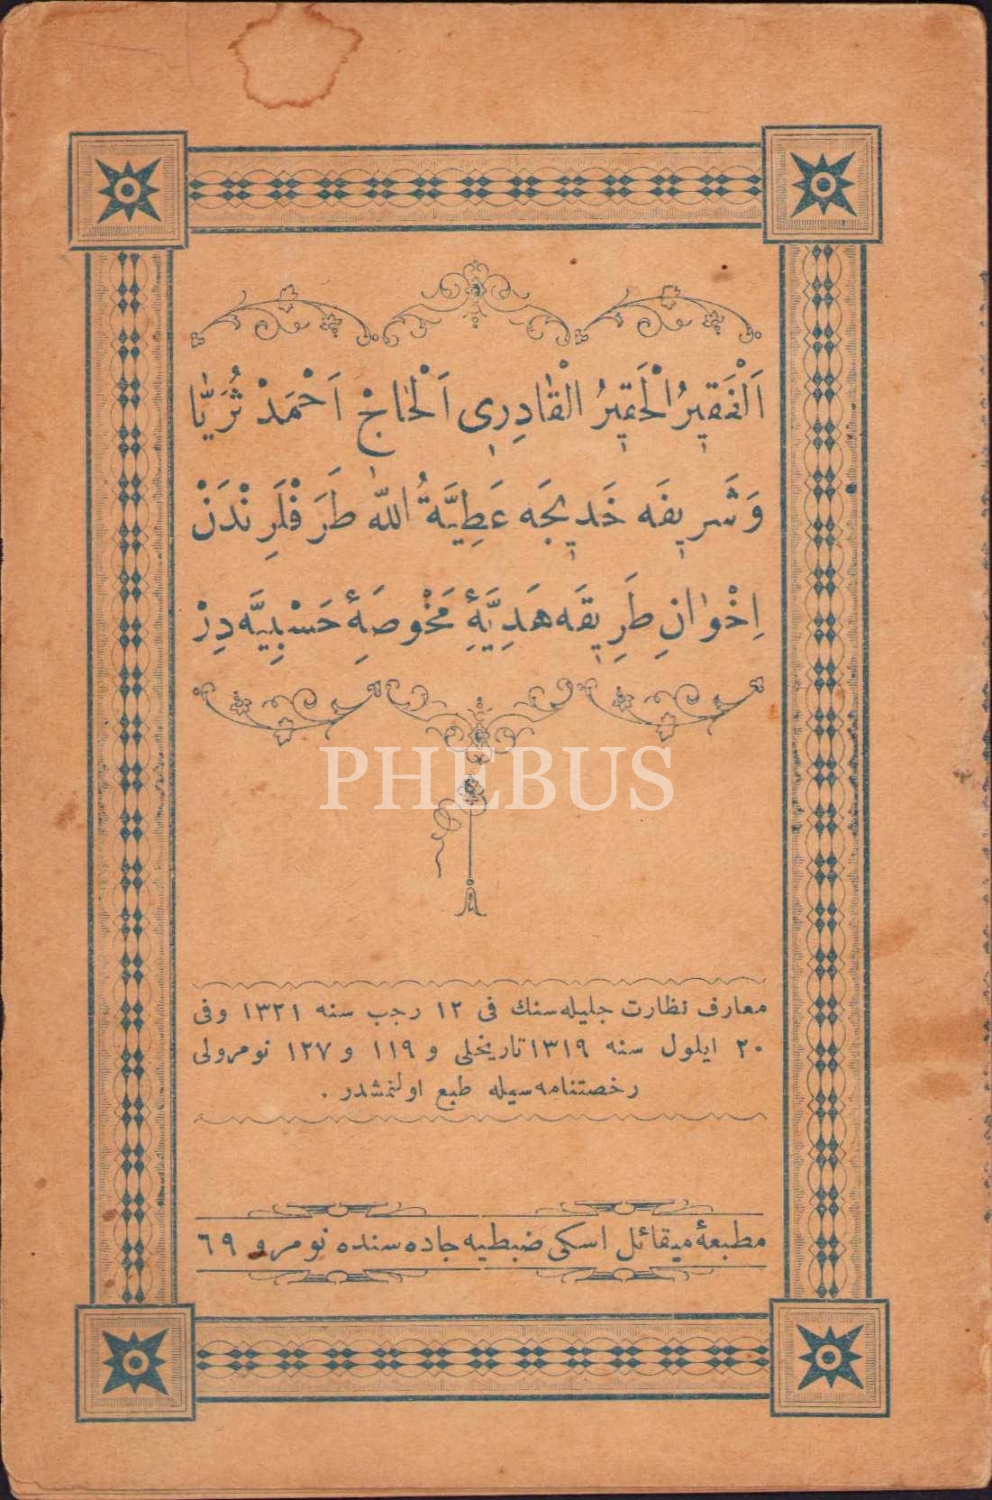 اَلْفَقِيرُ الْحَقِيرُ الْقَادِرِى اَلْحَاجْ اَحْمَدْ ثُرَيَّا
وَشَرِيفَه خَدِيجَه عَطِيَّةُ اللّٰه طَرَفْلَرِنْدَنْ
اِخْوَانِ طَرِيقَه هَدِيَّهِٔ مَخْصُوصَهِٔ حَسْبِيَّه دِرْ
PHEBUS
معارف نظارت جليله سنك فى ١٢ رجب سنه ١٣٢١ وفى
٢٠ ايلول سنه ١٣١٩ تاريخلى و ١١٩ و ١٢٧ نومرولى
رخصتنامه سيله طبع اولنمشدر .
مطبعهٔ ميقائل اسكى ضبطيه جاده سنده نومرو ٦٩